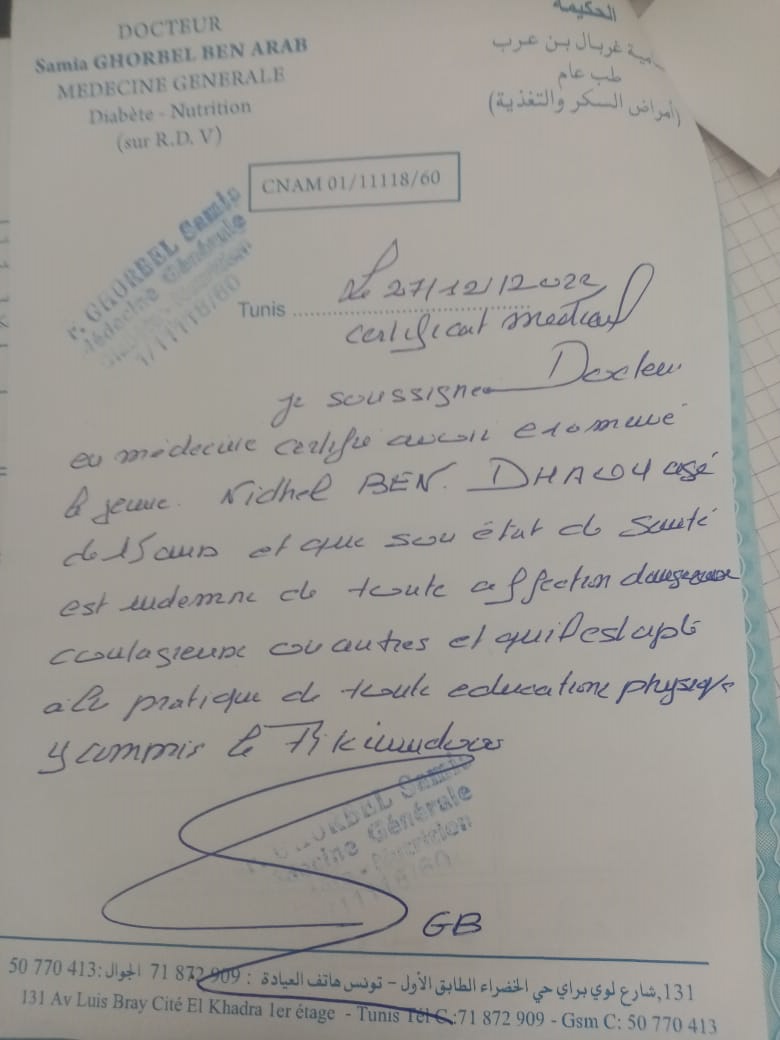 DOCTEUR
Samia GHORBEL BEN ARAB
MEDECINE GENERALE
Diabète - Nutrition
(sur R.D. V)
الحكيمة
ـامية غربال بن عرب
طب عام
(أمراض السكر والتغذية)
CNAM 01/11118/60
GHORBEL Samia
Médecine Générale
1/11118/60
Le 27/12/2022
Tunis
certificat medical
je soussigne Docteur
en médecine certifie avoir examiné
le jeune Nidhel BEN. DHAOU agé
de 15 ans et que son état de santé
est indemne de toute affection dangereuse
contagieuse ou autres et qu'il est apte
à la pratique de toute education physique
y commpris le
GHORBEL Samia
Médecine Générale
Nutrition
11118/60
GB
131,شارع لوي براي حي الخضراء الطابق الأول - تونس هاتف العيادة : 71 872 909 الجوال: 50 770 413
131 Av Luis Bray Cité El Khadra 1er étage - Tunis Tél C.:71 872 909 - Gsm C: 50 770 413